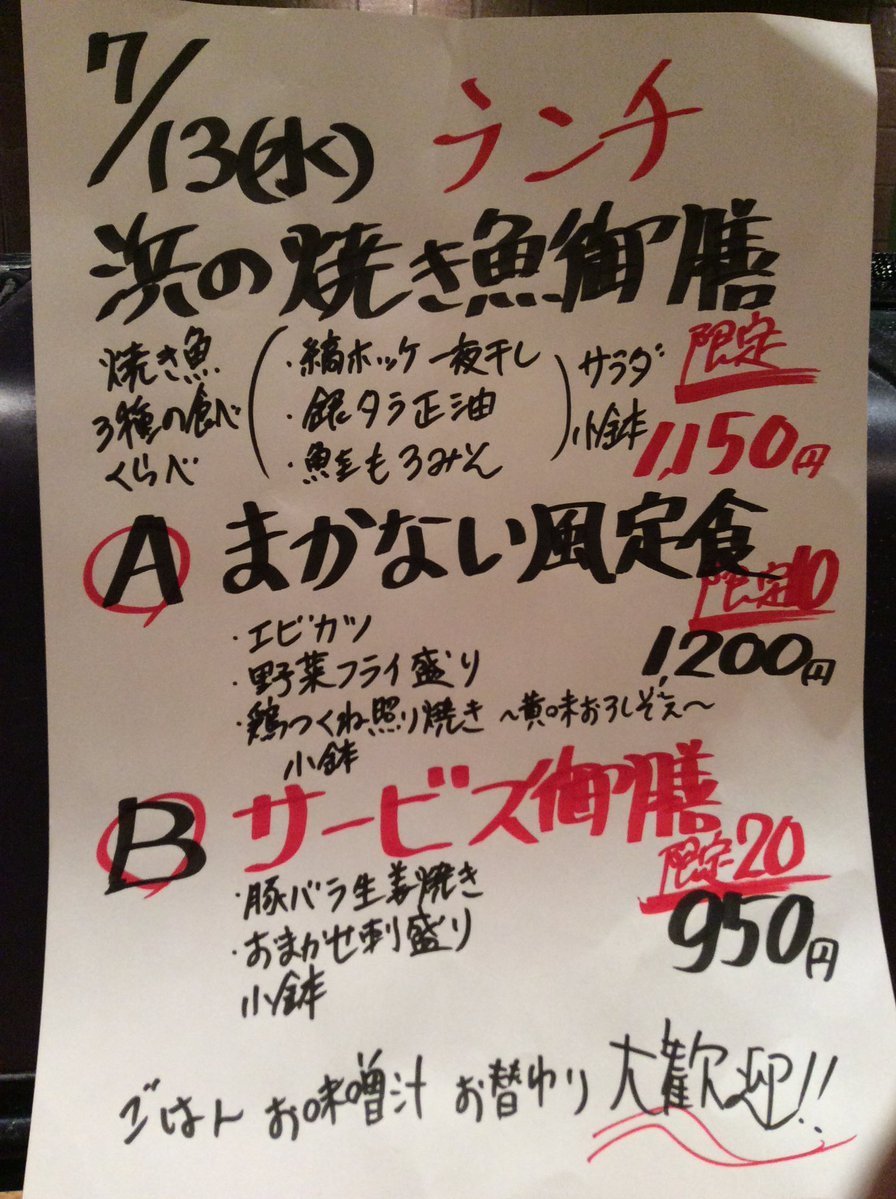 7/13(水) ランチ
浜の焼き魚御膳
焼き魚
3種の食べ
くらべ
・縞ホッケ一夜干し
・銀タラ正油
・鮭もろみそ
サラダ
小鉢
限定
1,150円
A まかない風定食
限定10
1,200円
・エビカツ
・野菜フライ盛り
・鶏つくね照り焼き 〜黄味おろしぞえ〜
小鉢
B サービス御膳
限定20
950円
・豚バラ生姜焼き
・おまかせ刺盛り
小鉢
ごはん お味噌汁 お替わり 大歓迎!!